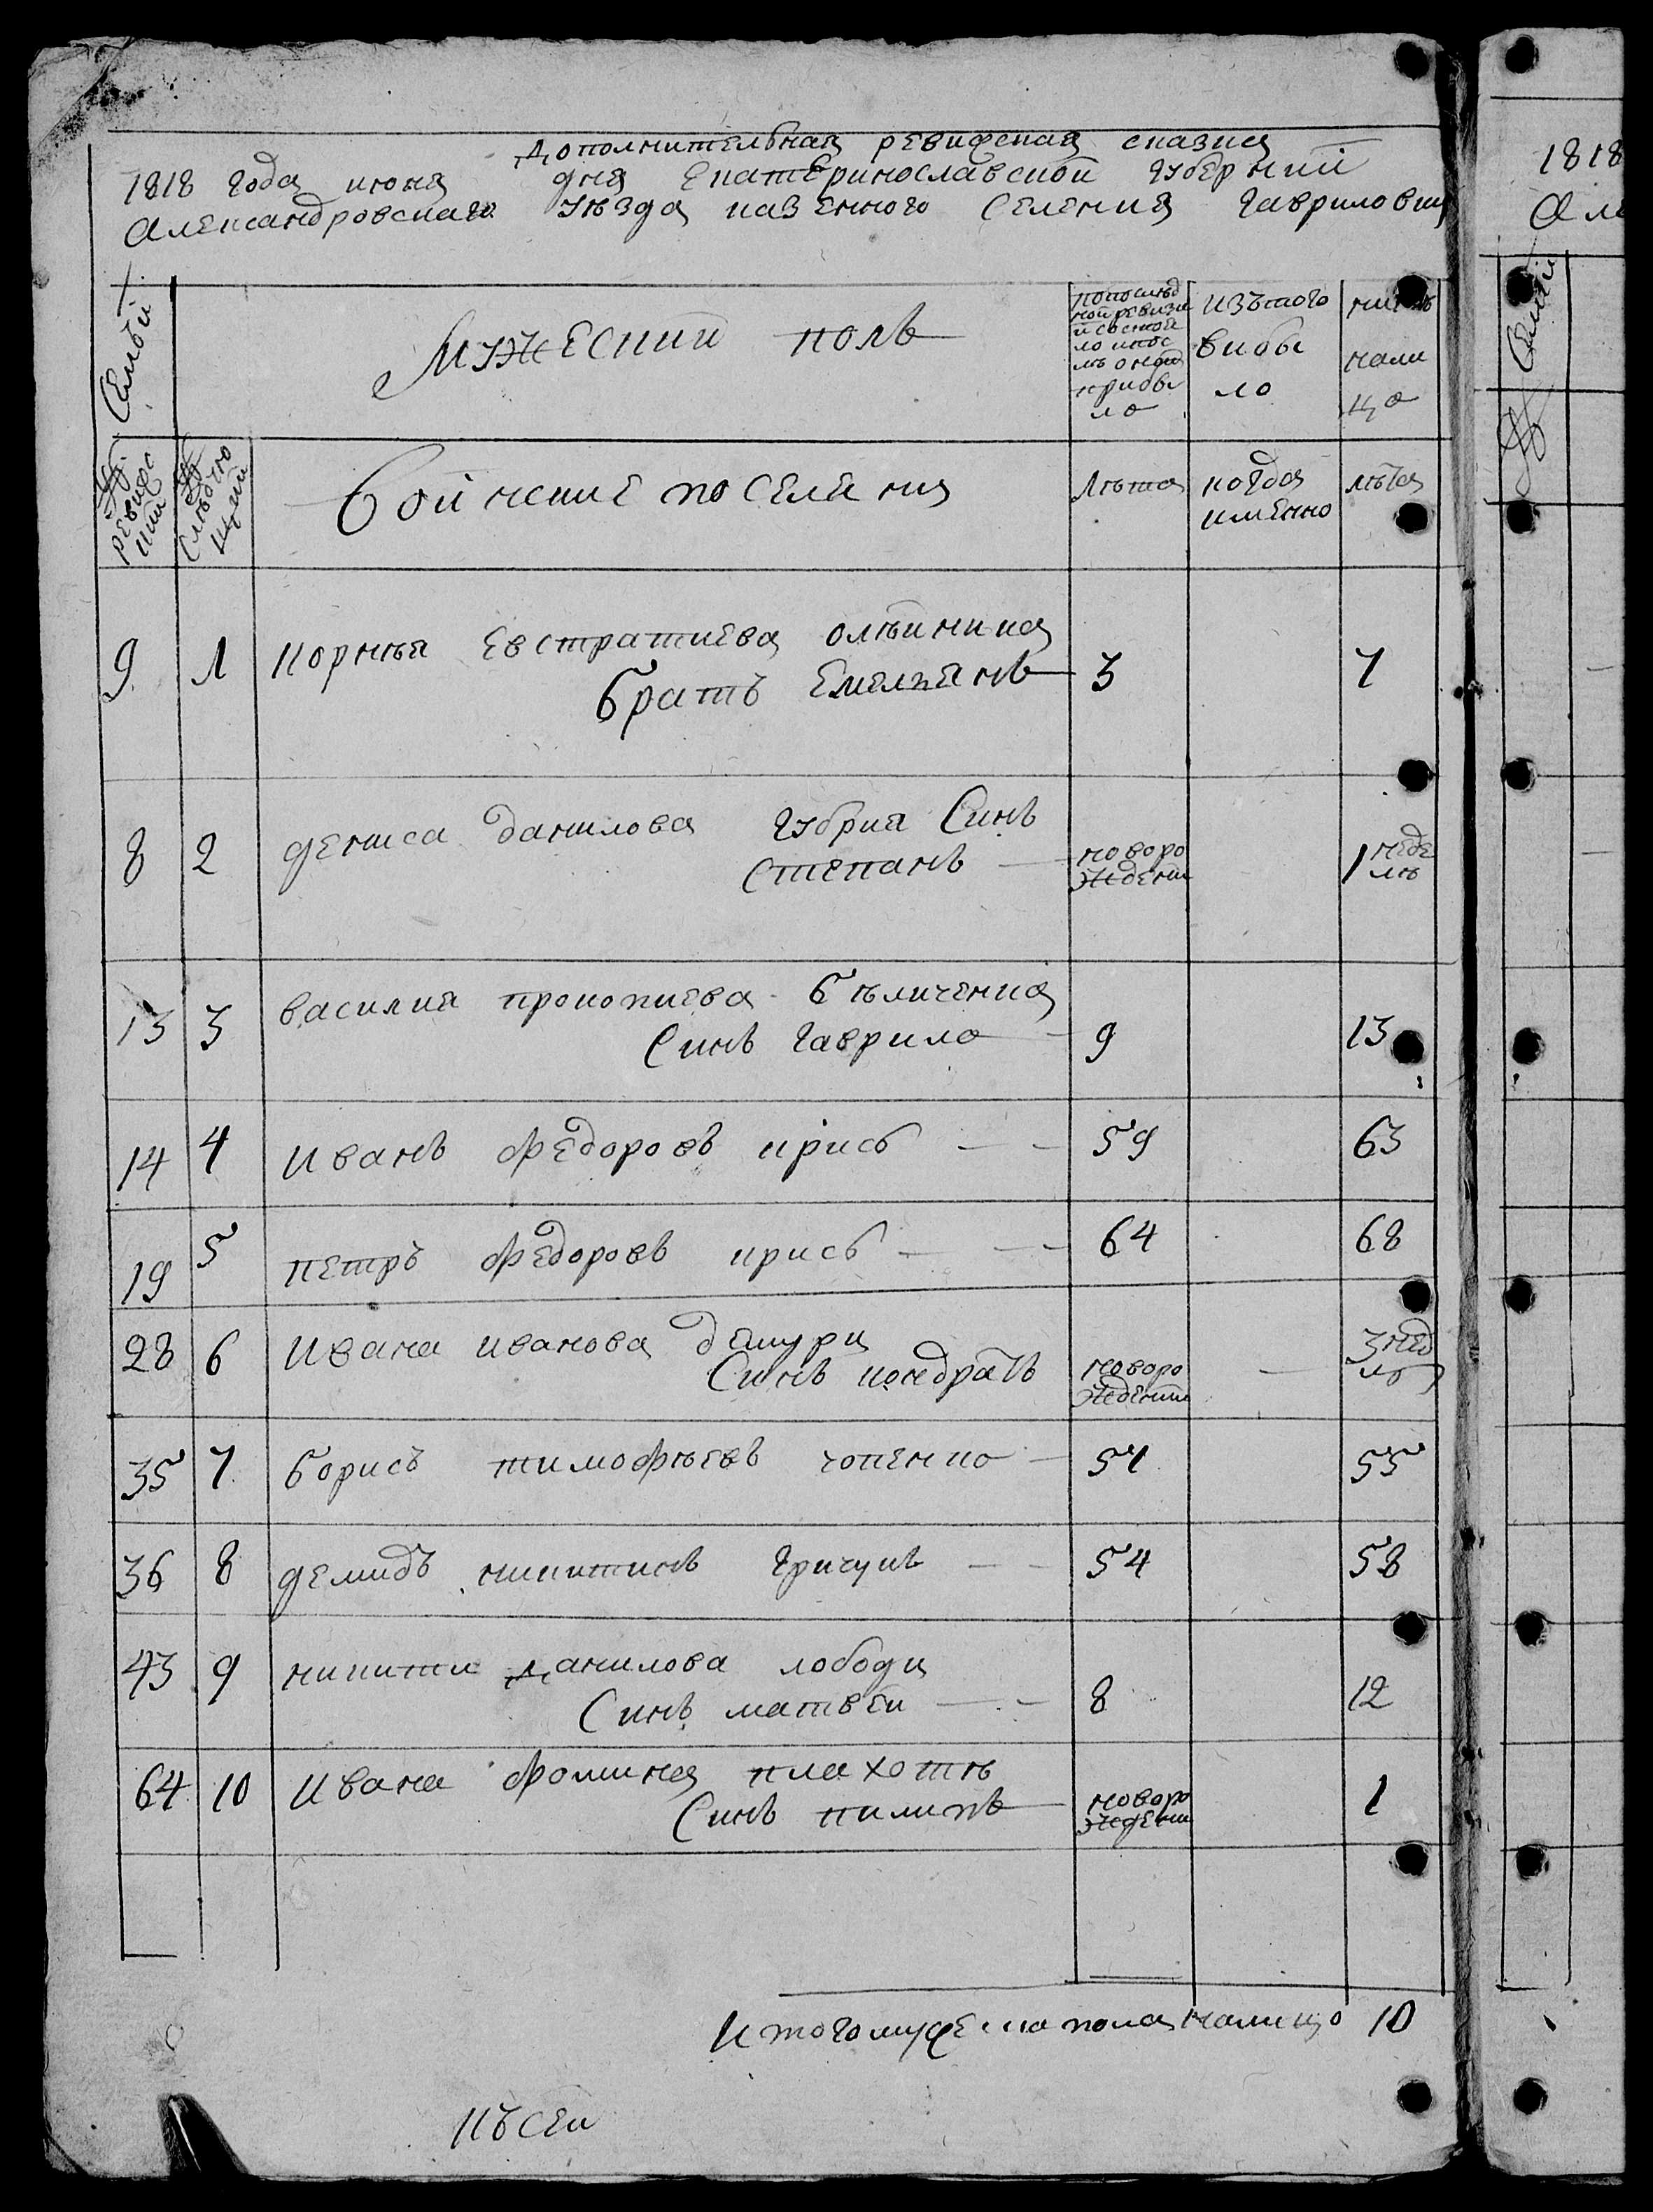 Дополнительная ревижская сказка
1818 года июня дня Екатеринославской губернии
Александровскаго уезда казенного селения Гавриловки
1818
Але
Семьи
Мужеский полъ
попослѣд
ной ревизи
и состоя
ло и пос
лѣ оной
прибы
ло
изъ того
выбы
ло
нынѣ
нали
цо
№ ревижс
кии
№ слѣдую
щии
Войнские поселяня
Лѣта
когда
именно
лѣта
9 1 Корнѣя Евстратиева олѣиника
братъ Емельянъ 3 7
8 2 дениса данилова губрия Синъ
Степанъ новоро
жденн 1 неде
лѣ
13 3 василия прокопиева бѣличенка
Синъ гаврило 9 13
14 4 иванъ федоровъ крисъ 59 63
19 5 петръ федоровъ крисъ 64 68
28 6 ивана иванова дмури
Синъ кондратъ новоро
жденни 3 нед
35 7 борисъ тимофѣевъ чопенко 51 55
36 8 демидъ никитинъ гричукъ 54 58
43 9 никити данилова лободи
Синъ матвеи 8 12
64 10 ивана фомина плахотѣ
Синъ пилипъ новоро
жденни 1
итого мужеска пола налицо 10
Къ сеи
Семьи
№